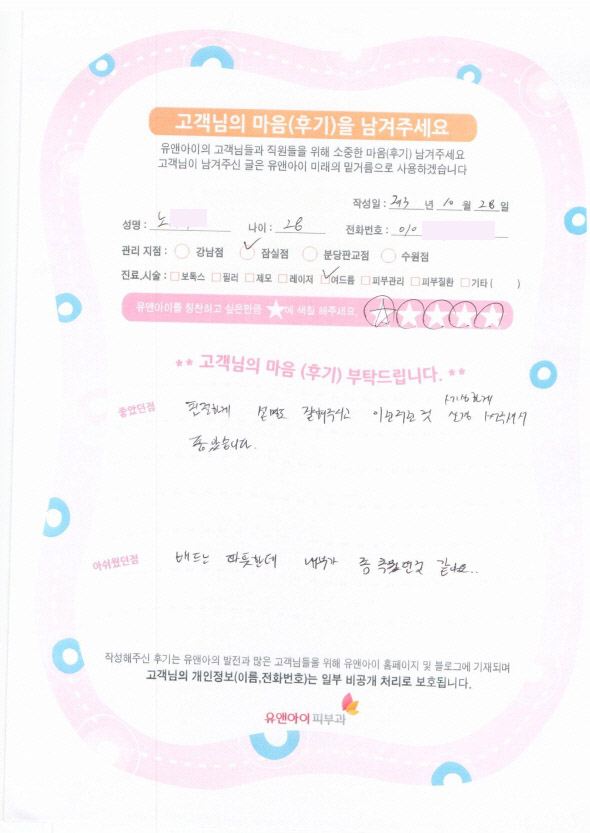 고객님의 마음(후기)을 남겨주세요
유앤아이의 고객님들과 직원들을 위해 소중한 마음(후기) 남겨주세요
고객님이 남겨주신 글은 유앤아이 미래의 밑거름으로 사용하겠습니다
작성일 : 년 10 월 28 일
성명 : 노 나이 : 28 전화번호 : 010
관리 지점 : 강남점 잠실점 분당판교점 수원점
진료,시술 : 보톡스 필러 제모 레이저 여드름 피부관리 피부질환 기타 ( )
유앤아이를 칭찬하고 싶은만큼 ★에 색칠 해주세요.
** 고객님의 마음 (후기) 부탁드립니다. **
좋았던점 친절하게 설명도 잘해주시고 세심하게
좋았습니다.
아쉬웠던점 베드는 따뜻한데 내부가 좀 추웠던것 같아요..
작성해주신 후기는 유앤아의 발전과 많은 고객님들을 위해 유앤아이 홈페이지 및 블로그에 기재되며
고객님의 개인정보(이름,전화번호)는 일부 비공개 처리로 보호됩니다.
유앤아이 피부과